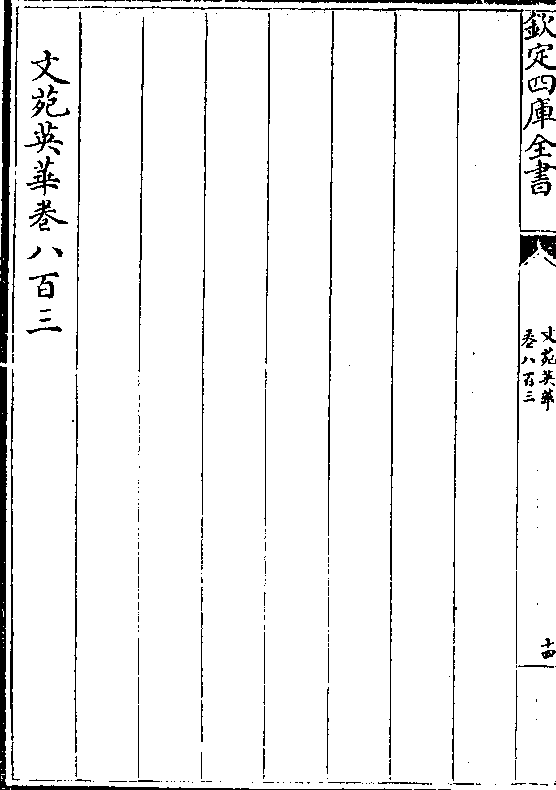 欽定四庫全書
文苑英華
卷八百三
十四
文苑英華卷八百三